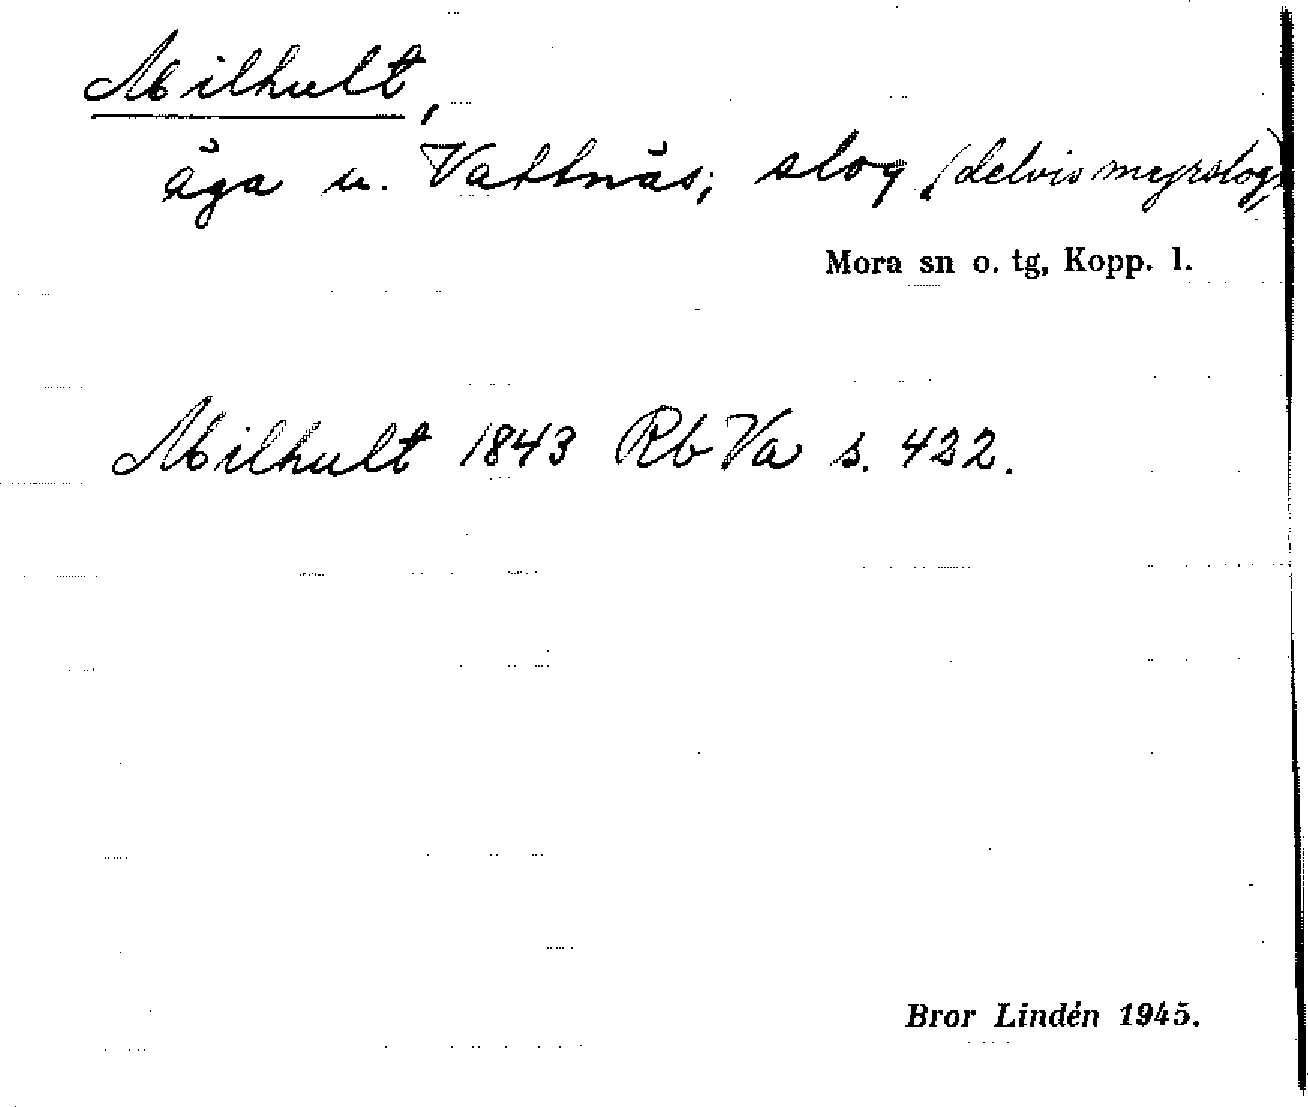 Milhult,
äga u. Vattnäs; slog (delvis myrslog),
Mora sn o. tg, Kopp. l.
Milhult 1843 Rb Va s. 422.
Bror Lindén 1945.